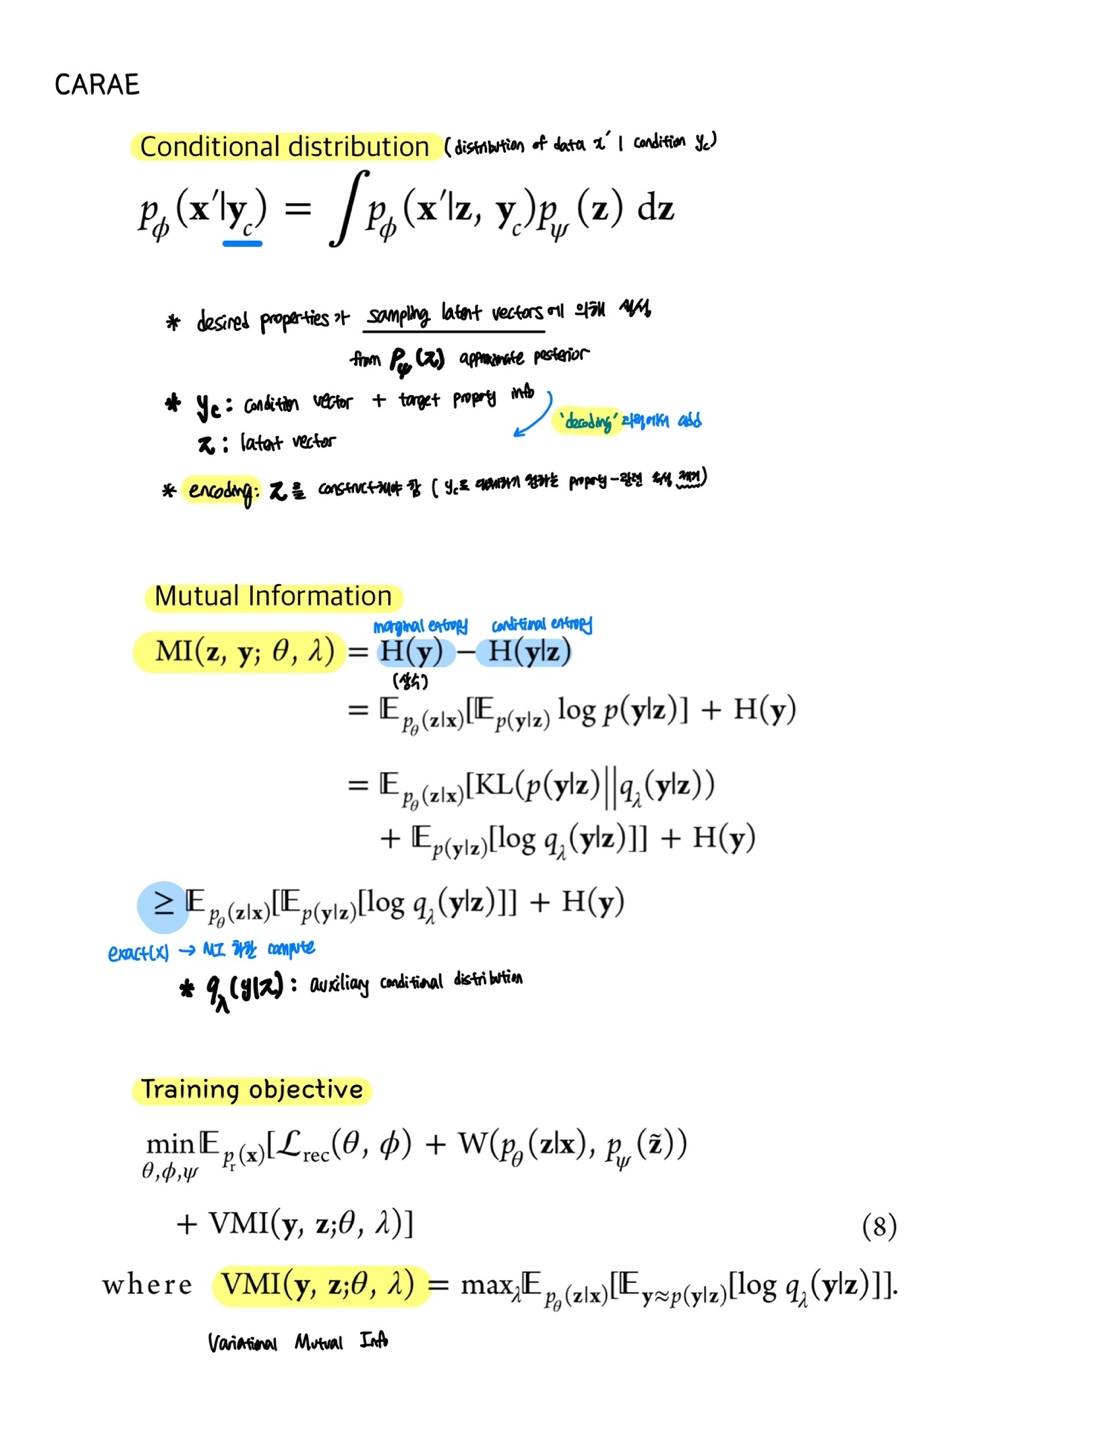 CARAE
Conditional distribution (distribution of data x′ | condition y_c)
p_ϕ(x′|y_c) = ∫p_ϕ(x′|z, y_c)p_ψ(z) dz
* desired properties가 sampling latent vectors에 의해 생성
from P_ψ(z) approximate posterior
* y_c: condition vector + target property info
'decoding' 과정에서 add
z: latent vector
* encoding: z를 construct해야 함 ( y_c로 대체하기 원하는 property-관련 속성 제거)
Mutual Information
marginal entropy conditional entropy
MI(z, y; θ, λ) = H(y) − H(y|z)
(상수)
= 𝔼_{p_θ(z|x)}[𝔼_{p(y|z)} log p(y|z)] + H(y)
= 𝔼_{p_θ(z|x)}[KL(p(y|z)||q_λ(y|z))
+ 𝔼_{p(y|z)}[log q_λ(y|z)]] + H(y)
≥ 𝔼_{p_θ(z|x)}[𝔼_{p(y|z)}[log q_λ(y|z)]] + H(y)
exact(x) → MI 하한 compute
* q_λ(y|z): auxiliary conditional distribution
Training objective
min_{θ,ϕ,ψ} 𝔼_{p_r(x)}[ℒ_rec(θ, ϕ) + W(p_θ(z|x), p_ψ(z̃))
+ VMI(y, z;θ, λ)] (8)
where VMI(y, z;θ, λ) = max_λ𝔼_{p_θ(z|x)}[𝔼_{y≈p(y|z)}[log q_λ(y|z)]].
Variational Mutual Info